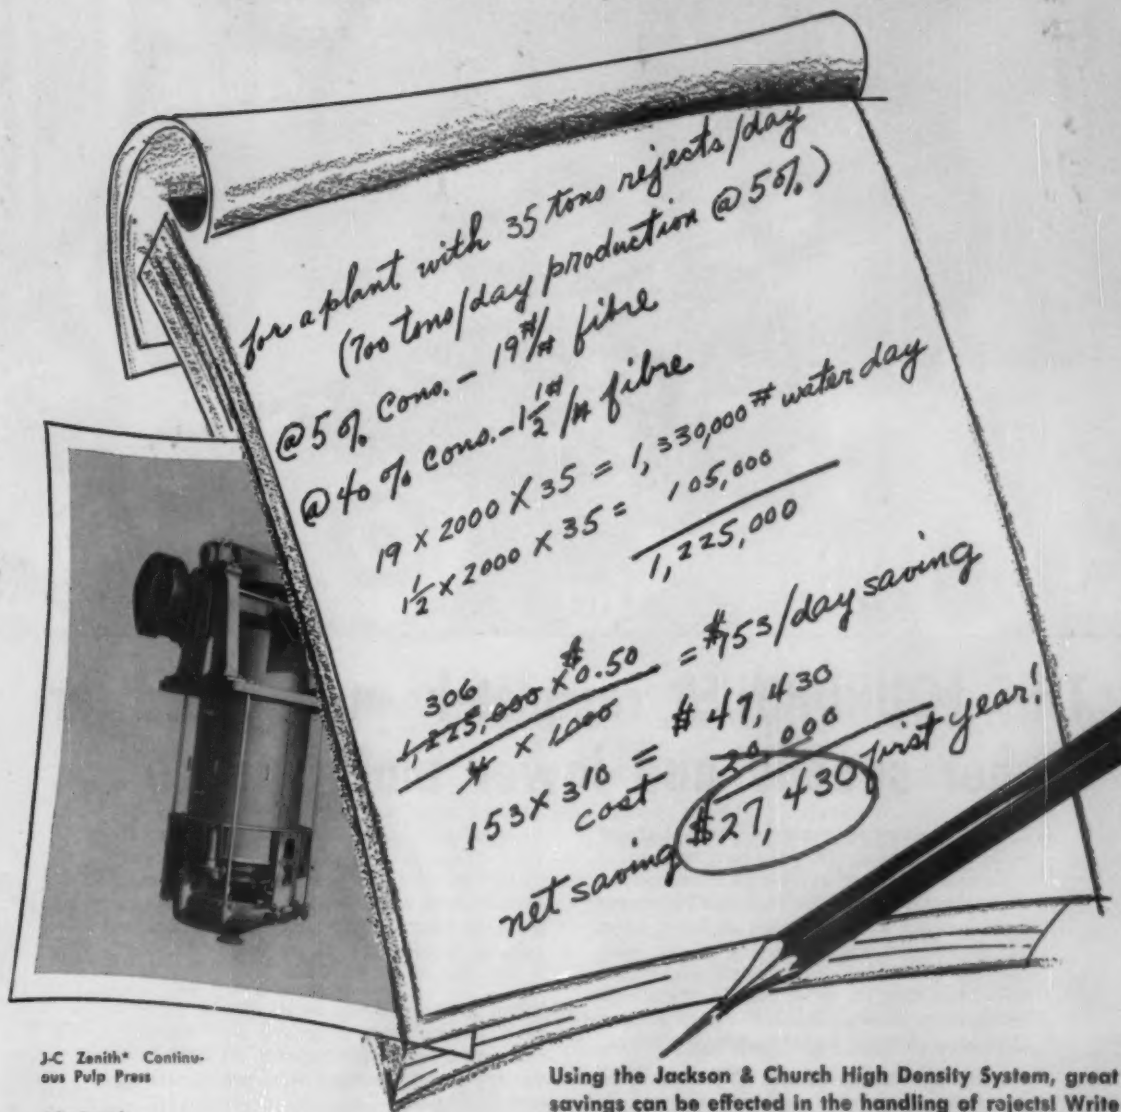 for a plant with 35 tons rejects/day
(700 tons/day production @ 5%)
@ 5% Cons. - 19#/# fibre
@ 40% Cons. - 1 1/2#/# fibre
19 x 2000 x 35 = 1,330,000 # water day
1 1/2 x 2000 x 35 = 105,000
1,225,000
306
1,225,000 x $0.50 = $153/day saving
4 x 1000
153 x 310 = $47,430
cost 20,000
net saving $27,430 first year!
J-C Zenith* Continu-
ous Pulp Press
Using the Jackson & Church High Density System, great
savings can be effected in the handling of rejects! Write